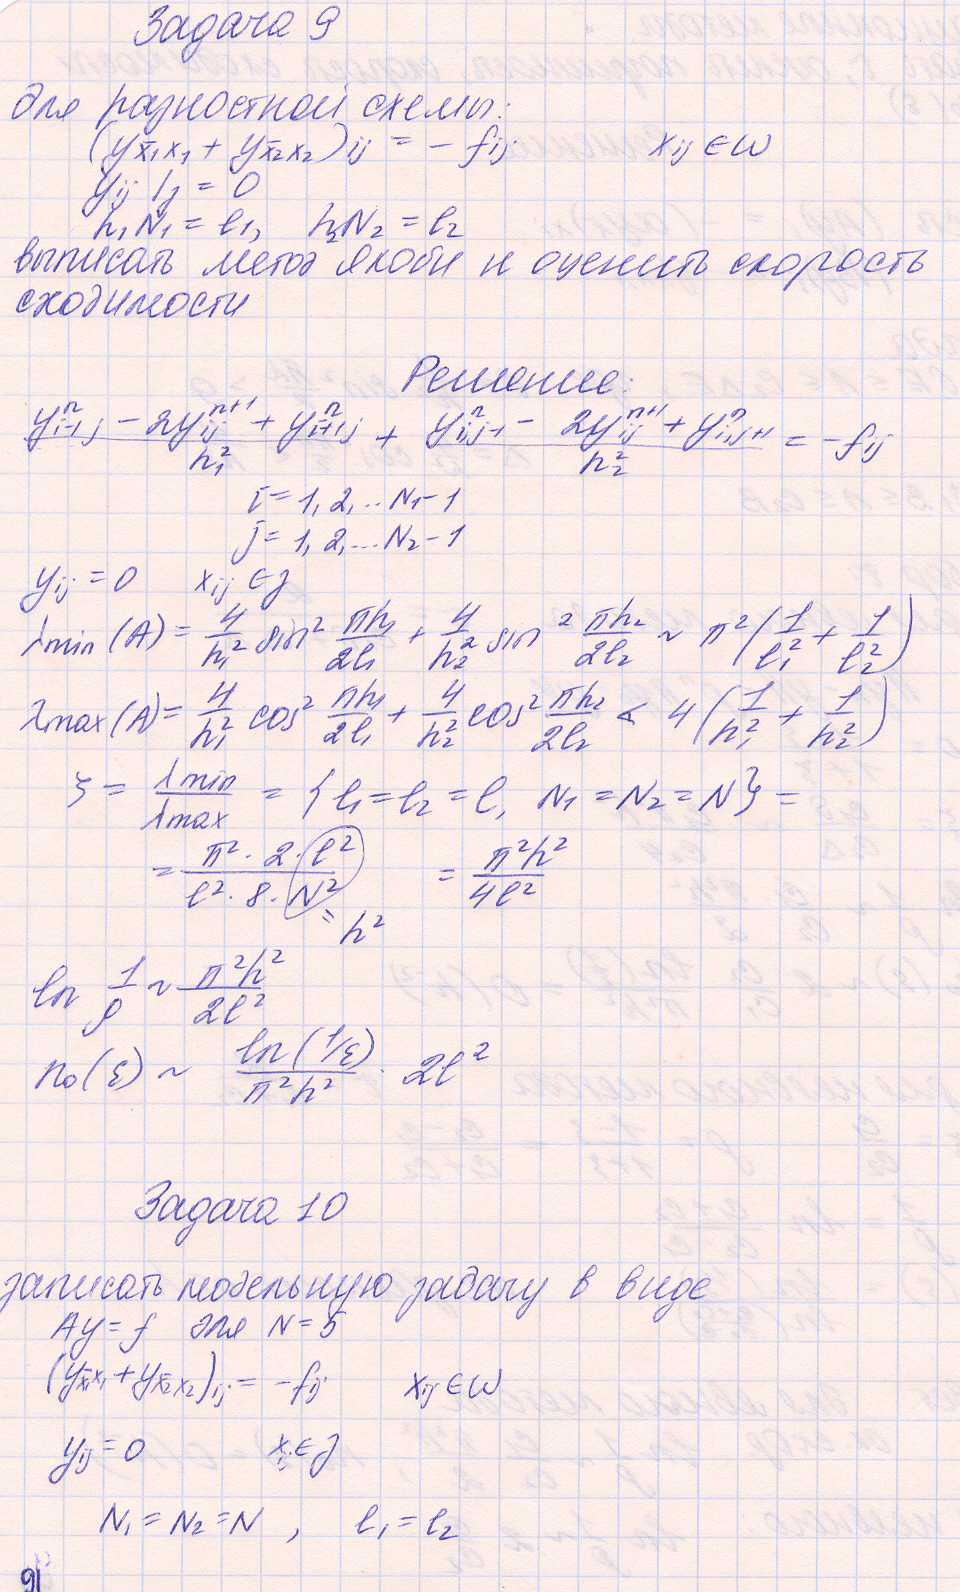 Задача 9
для разностной схемы:
(y_{x̄₁x₁} + y_{x̄₂x₂})_{ij} = − f_{ij}    x_{ij} ∈ ω
y_{ij} |_γ = 0
h₁N₁ = l₁,   h₂N₂ = l₂
выписать метод Якоби и оценить скорость
сходимости
Решение:
(yⁿ_{i-1j} − 2yⁿ⁺¹_{ij} + yⁿ_{i+1j})/h₁² + (yⁿ_{i,j-1} − 2yⁿ⁺¹_{ij} + yⁿ_{i,j+1})/h₂² = −f_{ij}
i = 1, 2, ... N₁−1
j = 1, 2, ... N₂−1
y_{ij} = 0    x_{ij} ∈ γ
λmin(A) = 4/h₁² sin² πh₁/2l₁ + 4/h₂² sin² πh₂/2l₂ ~ π²(1/l₁² + 1/l₂²)
λmax(A) = 4/h₁² cos² πh₁/2l₁ + 4/h₂² cos² πh₂/2l₂ < 4(1/h₁² + 1/h₂²)
ξ = λmin/λmax = {l₁ = l₂ = l, N₁ = N₂ = N} =
= π²·2·l²/l²·8·N² = π²h²/4l²
= h²
ln 1/ρ ~ π²h²/2l²
n₀(ε) ~ ln(1/ε)/π²h² · 2l²
Задача 10
записать модельную задачу в виде
Ay = f для N = 5
(y_{x̄₁x₁} + y_{x̄₂x₂})_{ij} = −f_{ij}    x_{ij} ∈ ω
y_{ij} = 0    x_{ij} ∈ γ
N₁ = N₂ = N ,   l₁ = l₂
91